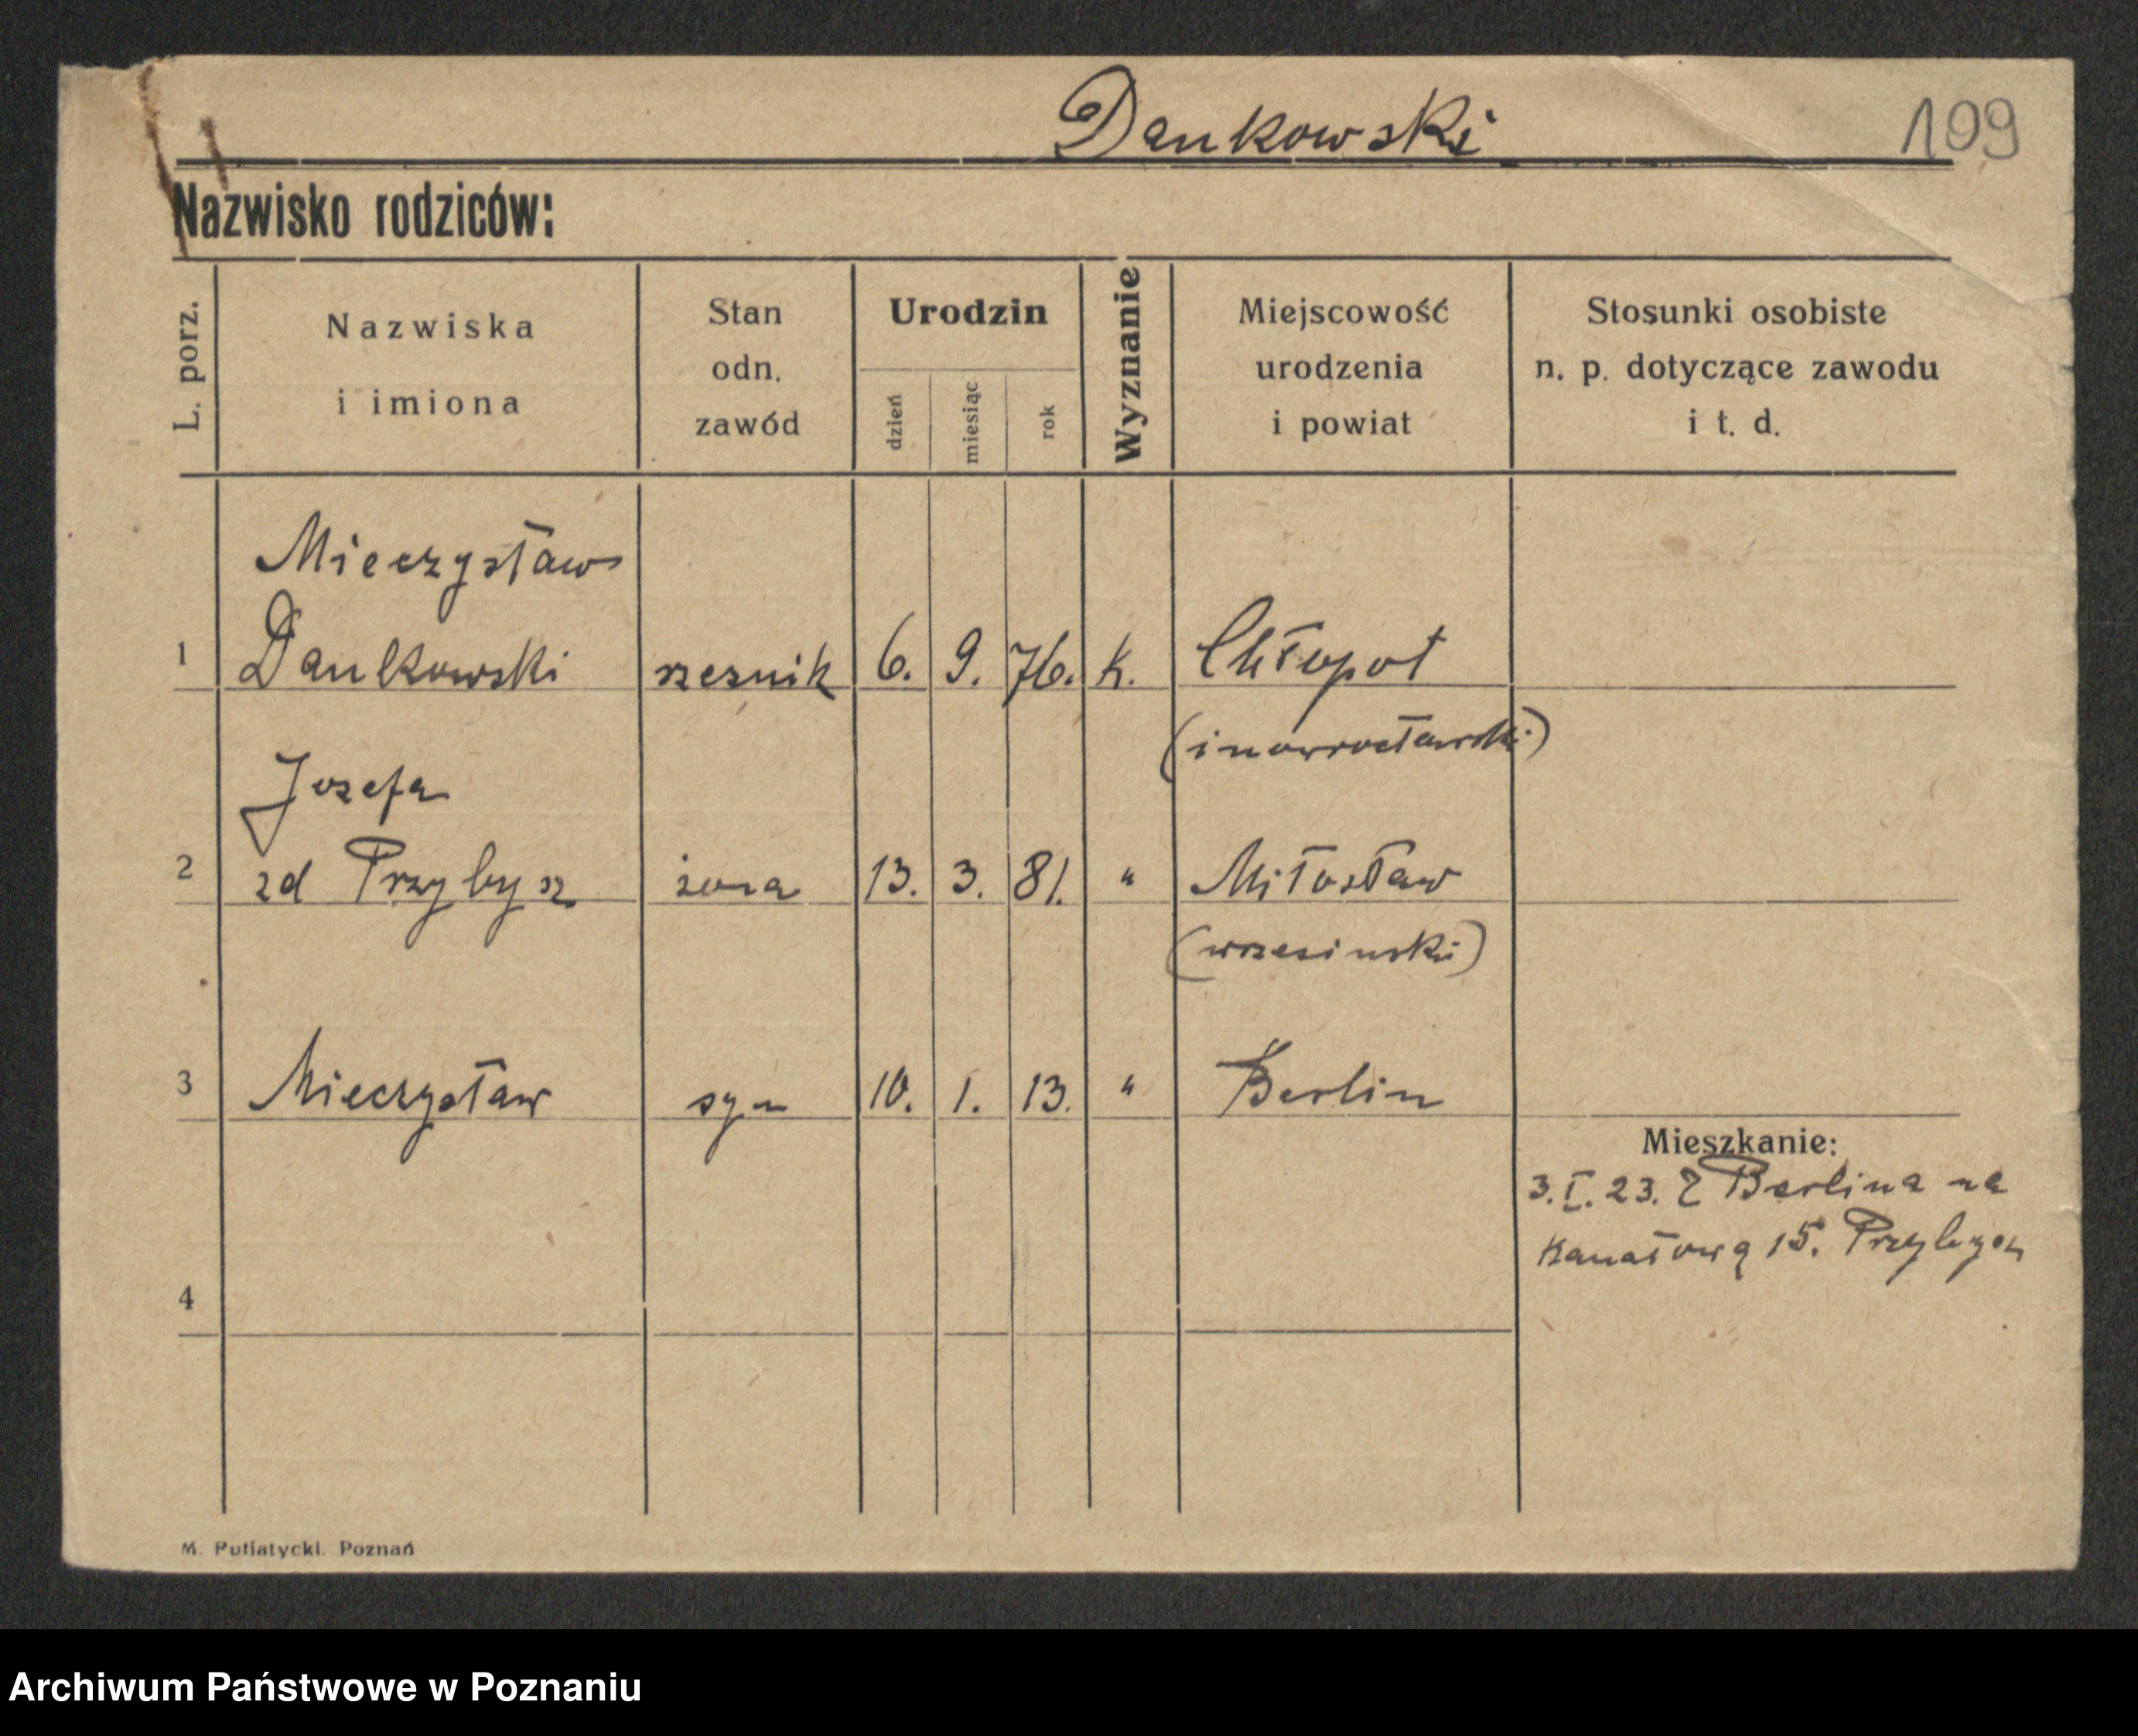 Dankowski
109
Nazwisko rodziców:
L. porz.
Nazwiska
i imiona
Stan
odn.
zawód
Urodzin
dzień
miesiąc
rok
Wyznanie
Miejscowość
urodzenia
i powiat
Stosunki osobiste
n. p. dotyczące zawodu
i t. d.
Mieczysław
1 Dankowski rzeźnik 6. 9. 76. k. Chłopot
(inowrocławski)
Jozefa
2 zd Przybysz żona 13. 3. 81. " Miłosław
(wrzesinski)
3 Mieczysław syn 10. 1. 13. " Berlin
Mieszkanie:
3. I. 23. Z Berlina na
Kanałową 15. Przybysz
4
M. Putiatycki. Poznań
Archiwum Państwowe w Poznaniu